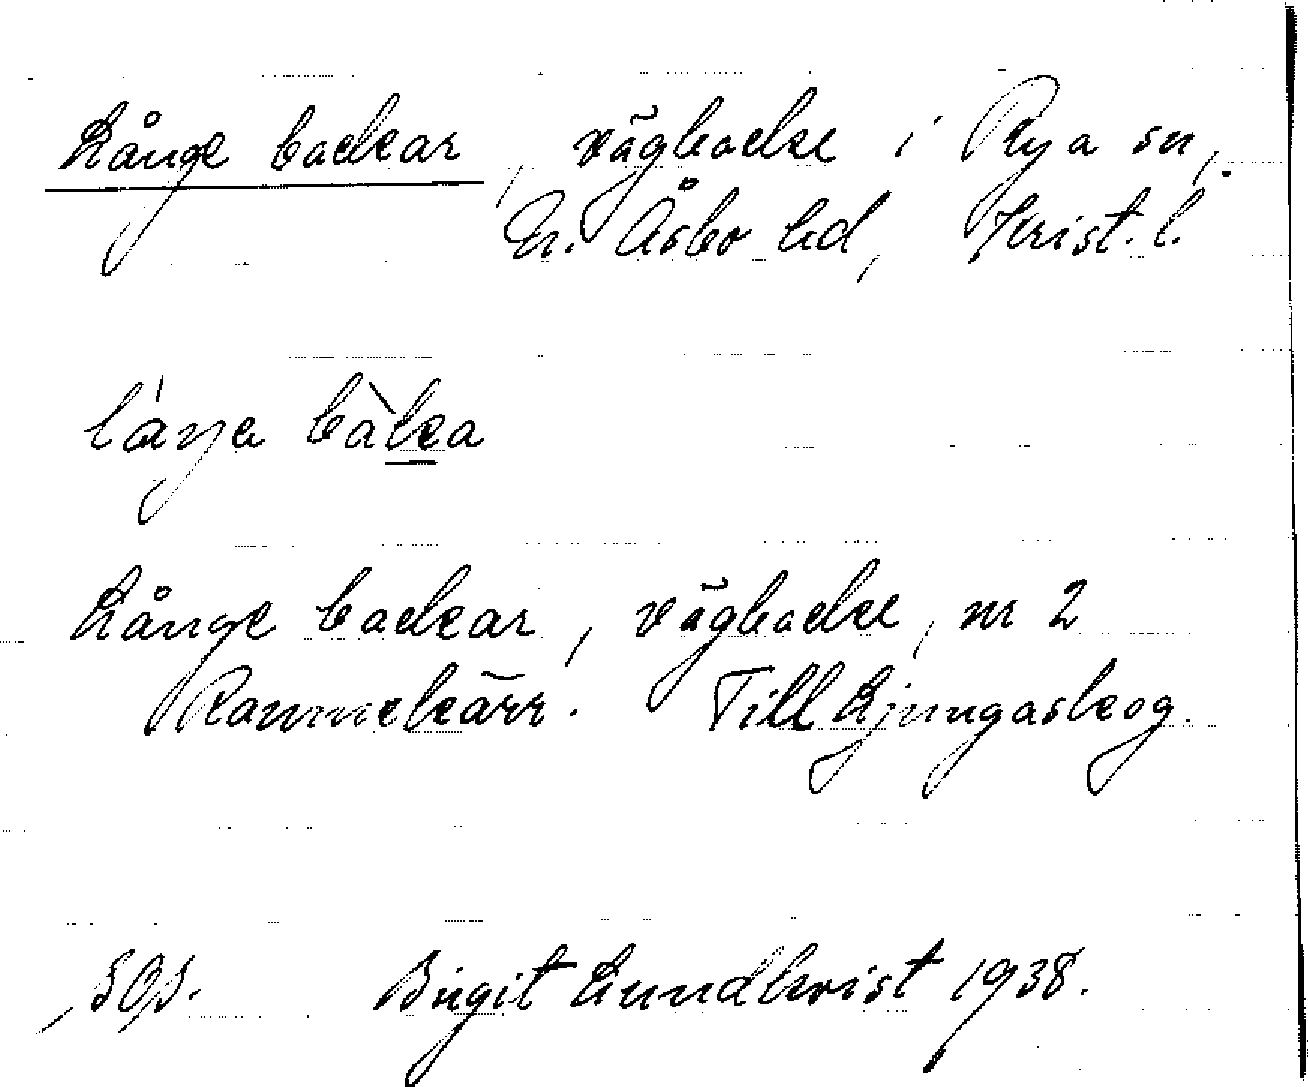 Långe backar, vägbacke i Rya sn,
N. Åsbo hd, Krist. l.
Långe backar, vägbacke, nr 2
Rammekärr. Till Ljungaskog.
Birgit Lundkvist 1938.